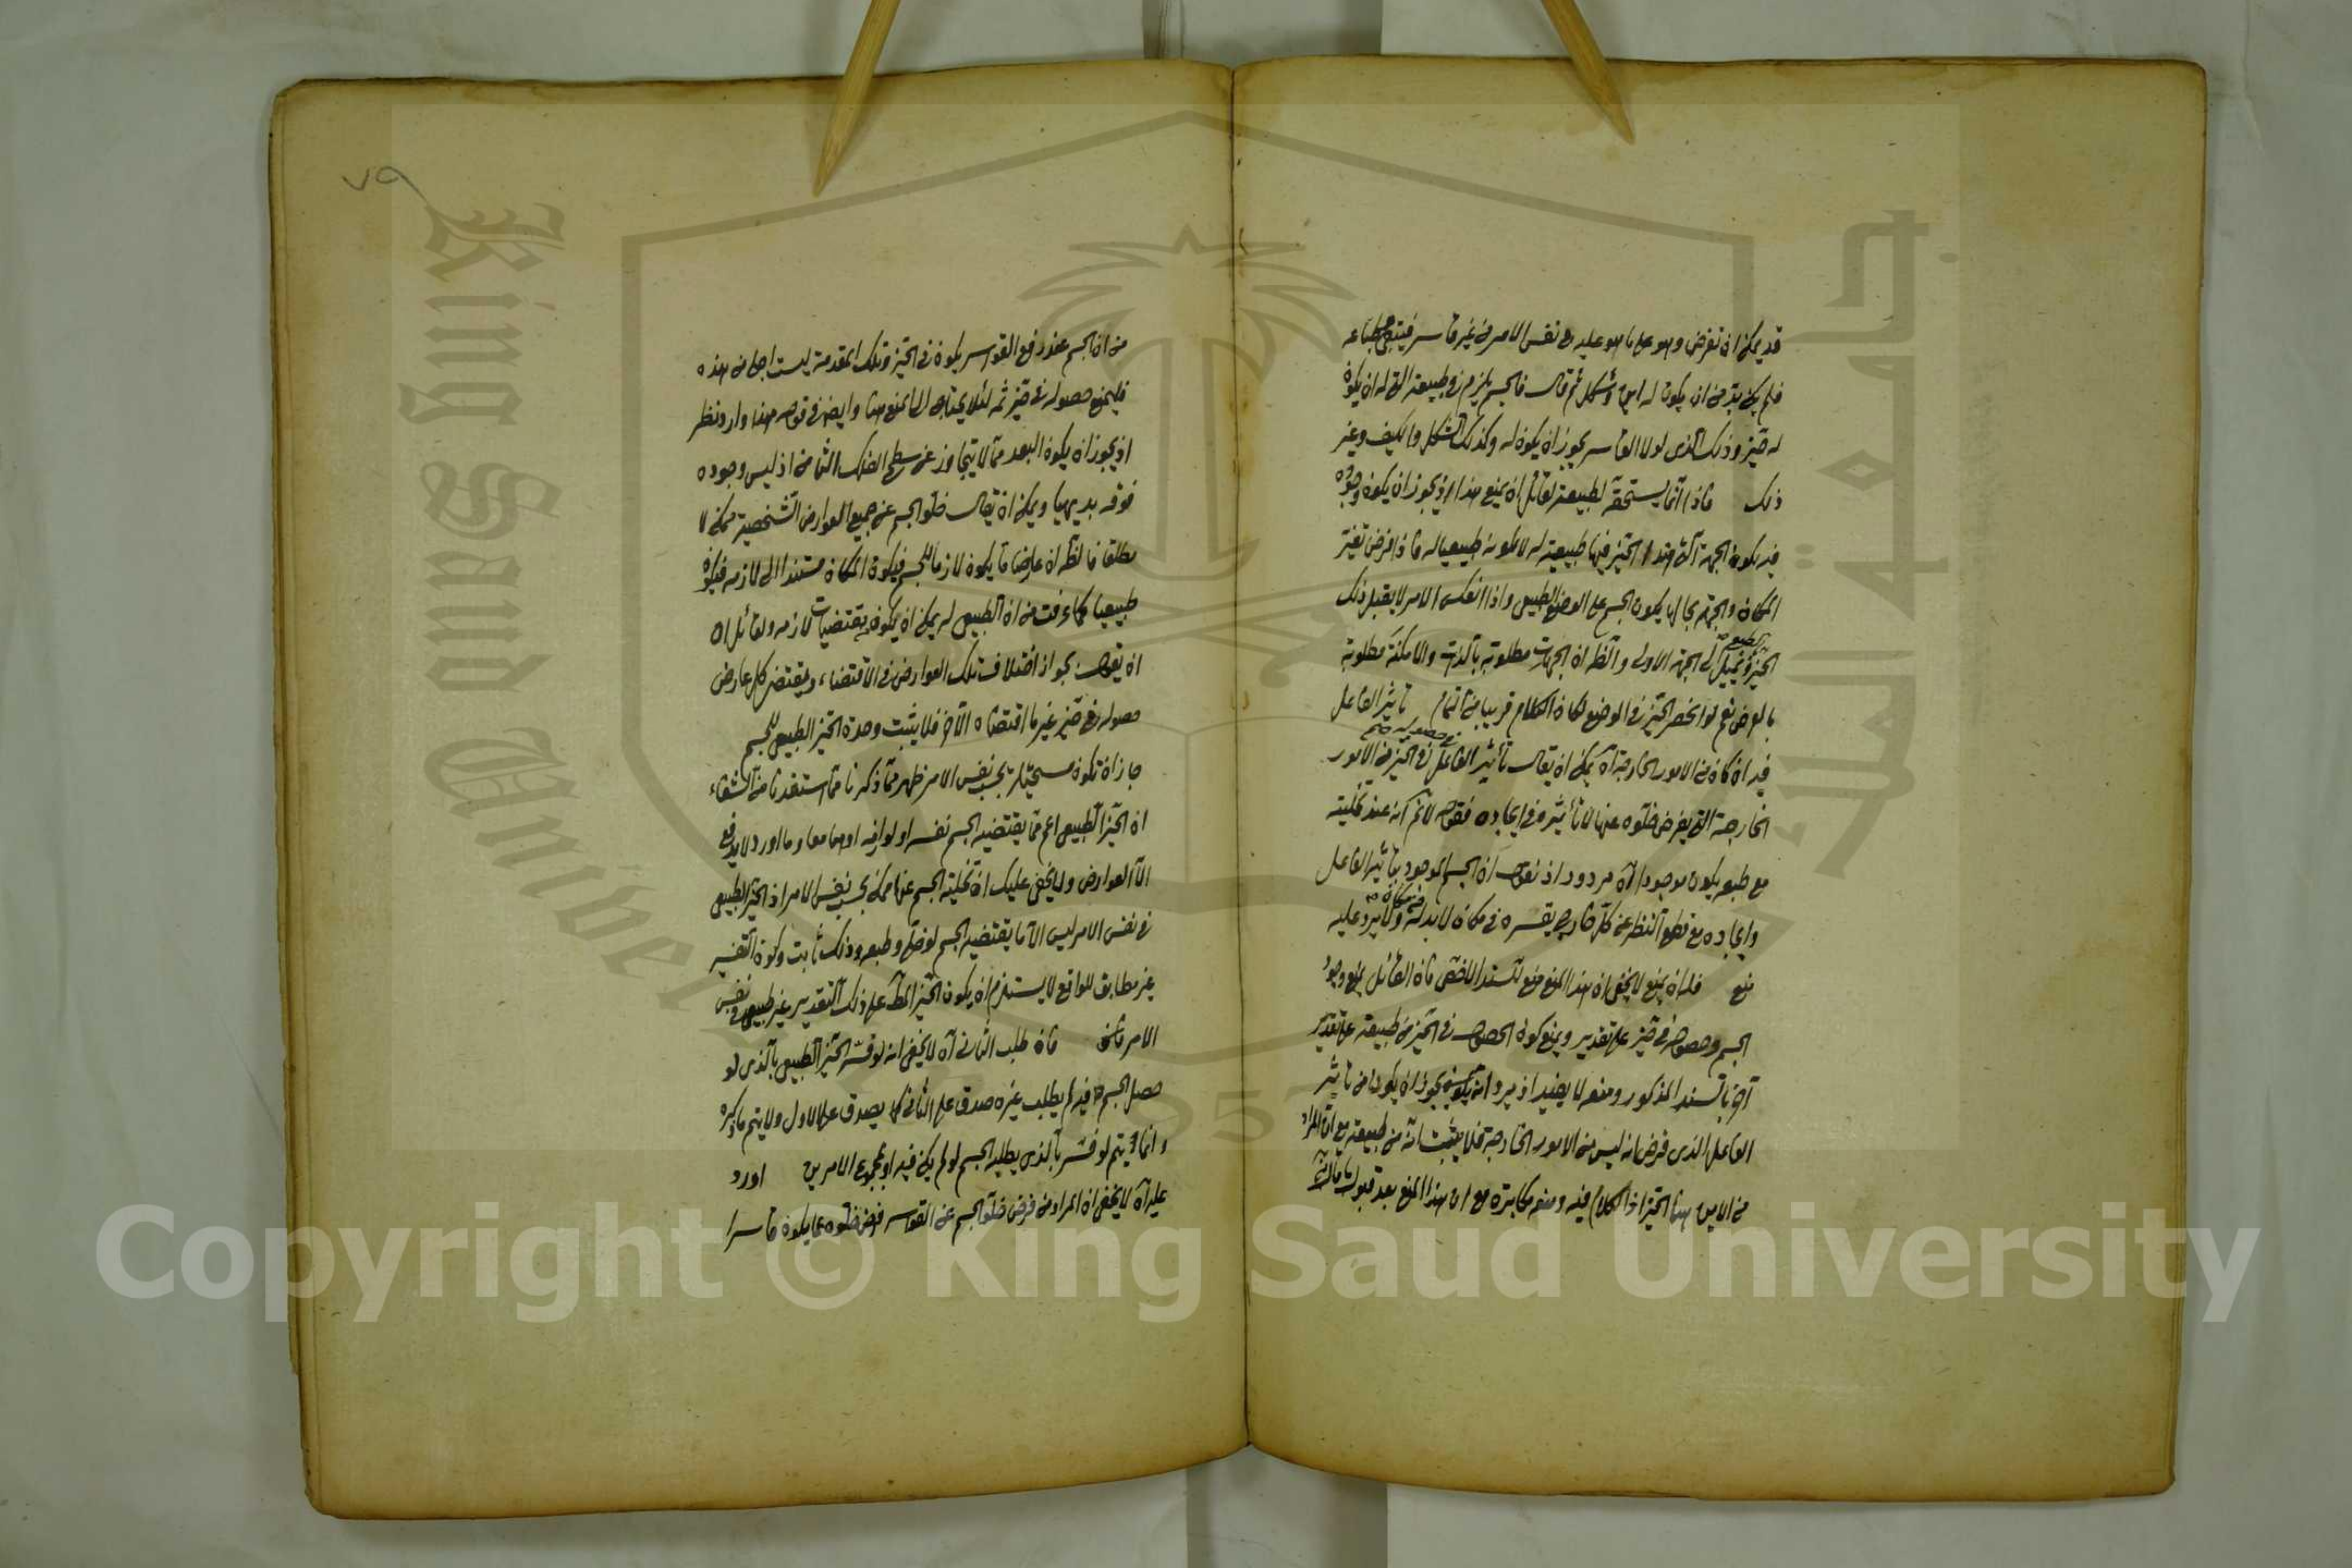 قد يمكن ان تفرض وهو على ما هو عليه في نفس الامر من غير قاسر فيبقى طباعه
فلم يكن بد من ان يكون له اين وشكل ثم قال فالجسم يلزم في طبيعته التي له ان يكون
له حيز وذلك الذي لولا القاسر يجوز ان يكون له وكذلك الشكل والكيف وغير
ذلك فاذا انما يستحقه لطبيعته لقائل ان يمنع هذا اذ يجوز ان يكون وجوده
فيه بكون الجهة التي هذا الحيز فيها طبيعية له لا لكونه طبيعيا له فاذا فرض تغير
المكان والجهة بحالها يكون الجسم على الوضع الطبيعي واذا انعكس الامر لا يقبل ذلك
الحيز ويميل الى الجهة الاولى والظ ان الجهات مطلوبة بالذات والامكنة مطلوبة
بالعرض نعم لو انحصر الحيز في الوضع لكان الكلام قريبا من التمام تأثير الفاعل
فيه ان كان من الامور الخارجة اه يمكن ان يقال تأثير الفاعل في الحيز من الامور
الخارجة التي يفرض خلوه عنها لا تأثيره في ايجاده فقوله لانم انه عند تخليته
مع طبعه يكون موجودا اه مردود اذ نقول ان الجسم الموجود بتأثير الفاعل
وايجاده مع قطع النظر عن كل خارج يقسره في مكان لا بد له من مكان ولا يرد عليه
منع فله ان يمنع لا يخفى ان هذا المنع منع للسند الاخص فان القائل يمنع وجود
الجسم وحصوله في حيز على تقدير ويمنع كون الحصول في الحيز من طبيعته على تقدير
آخر بالسند المذكور ومنعه لا يفيد اذ يرد انه يجوز ان يكون من تأثير
الفاعل الذي فرض انه ليس من الامور الخارجة فلا يثبت انه من طبيعته مع ان المراد
من الاين هنا الحيز اذ الكلام فيه ومنعه مكابرة مع ان هذا المنع بعد قبول
٧٥
من ان الجسم عند رفع القواسر يكون في الحيز وتلك المقدمة ليست اجلى من هذه
فليمنع حصوله في حيز ثمه لئلا يحتاج الى المنع هنا وايضا في قوله هذا وارد نظر
اذ يجوز ان يكون البعد مما لا يتجاوز عن سطح الفلك الثامن اذ ليس وجوده
فوقه بديهيا ويمكن ان يقال خلو الجسم عن جميع العوارض الشخصية ممكن لا
مطلقا فالظ ان عارضا ما يكون لازما للجسم فيكون المكان مستندا الى لازمه فيكون
طبيعيا كما عرفت من ان الطبيعي له يمكن ان يكون بمقتضيات لازمه ولقائل ان
ان يقول بجواز اختلاف تلك العوارض في الاقتضاء ويقتضي كل عارض
حصوله في حيز غير ما اقتضاه الآخر فلا يثبت وحدة الحيز الطبيعي للجسم
جاز ان تكون مستحيلة بحسب نفس الامر ظهر مما ذكرنا مما استفدنا من الشفاء
ان الحيز الطبيعي اعم مما يقتضيه الجسم نفسه او لوازمه او هما معا وما اورد لا يدفع
الا العوارض ولا يخفى عليك ان تخلية الجسم عنها ممكن بحسب نفس الامر اذ الحيز الطبيعي
في نفس الامر ليس الا ما يقتضيه الجسم لو خلي وطبعه وذلك ثابت وكون التفسير
غير مطابق للواقع لا يستلزم ان يكون الحيز المط على ذلك التقدير غير طبيعي في نفس
الامر فان طلب الثاني اه لا يخفى انه لو فسر الحيز الطبيعي بالذي لو
حصل الجسم فيه لم يطلب غيره صدق على الثاني كما يصدق على الاول ولا يتم ما ذكره
وانما يتم لو فسر بالذي يطلبه الجسم لو لم يكن فيه او بمجموع الامرين اورد
عليه اه لا يخفى ان المراد من فرض خلو الجسم عن القواسر فرض خلوه عما يكون قاسرا
King Saud University
Copyright © King Saud University